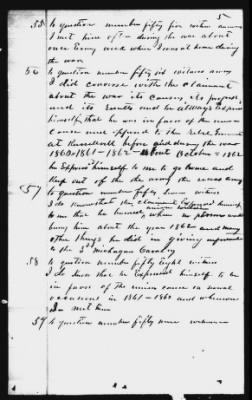 5
55 To question number fifty five witness answers
I met him oft - during the war about
once Every week when I was at home during
the war
56 To question number fifty six witness says
I did converse with the claimant
about the war its causes, its progress
and its results and he always Expressed
himself that he was in favor of the union
cause and opposed to the rebel
at Russellville before and during the war
1860 - 1861 - 1862 - about October - 1862
he Expressed himself to me to go home and
keep out of the the army
57 To question number fifty seven witness
I do know that the claimant Expressed himself
to me that he
him about the year 1862 and many
other things he did in giving
to the 2d Michagan Cavalry
58 To question number fifty Eight witness
I do swear that he Expressed himself to be
in favor of the union cause on several
occasions in 1861 - 1862 and whenever
I met him
59 To question number fifty nine witness